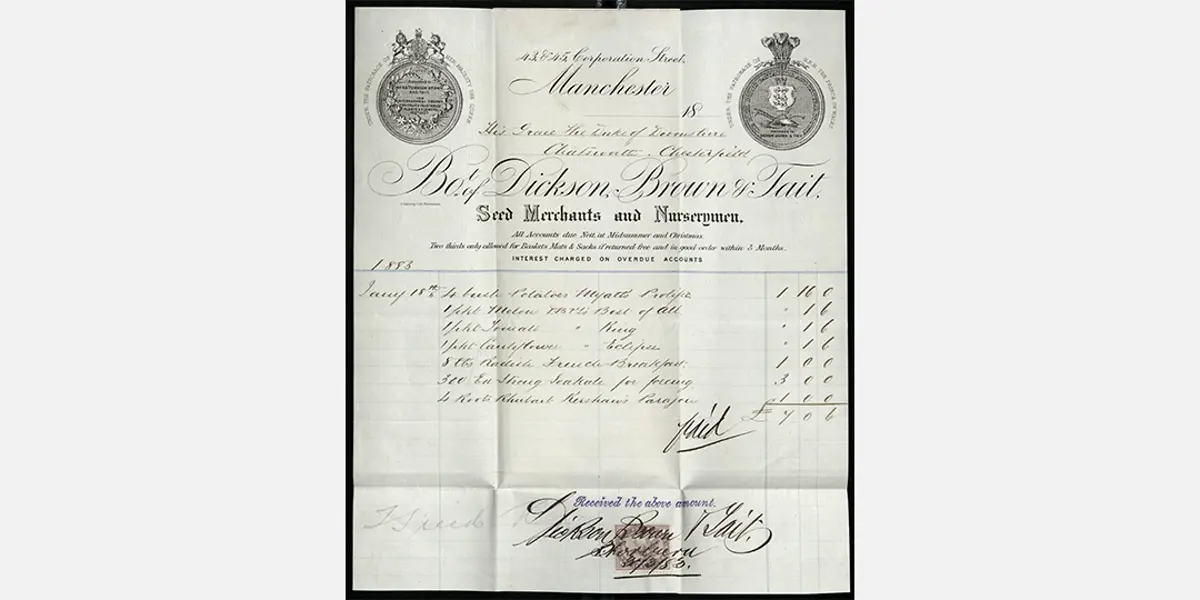 43, & 45, Corporation Street,
Manchester
18
UNDER THE PATRONAGE OF HER MAJESTY THE QUEEN
UNDER THE PATRONAGE OF H.R.H. THE PRINCE OF WALES
His Grace The Duke of Devonshire
Chatsworth, Chesterfield
Bot. of Dickson, Brown & Tait,
Seed Merchants and Nurserymen.
All Accounts due Nett, at Midsummer and Christmas.
Two thirds only allowed for Baskets Mats & Sacks if returned free and in good order within 3 Months.
INTEREST CHARGED ON OVERDUE ACCOUNTS
1883
Jany 18th 4 bush Potatoes Myatts Prolific 1 16 0
1 pkt Melon DB&T's Best of All " 1 6
1 pkt Tomato " King " 1 6
1 pkt Cauliflower " Eclipse " 1 6
8 lbs Radish French Breakfast 1 0 0
300 Ex Strong Seakale for forcing 3 0 0
4 Roots Rhubarb Kershaw's Paragon 1 0 0
£ 7 0 6
paid
Received the above amount.
Dickson Brown & Tait.